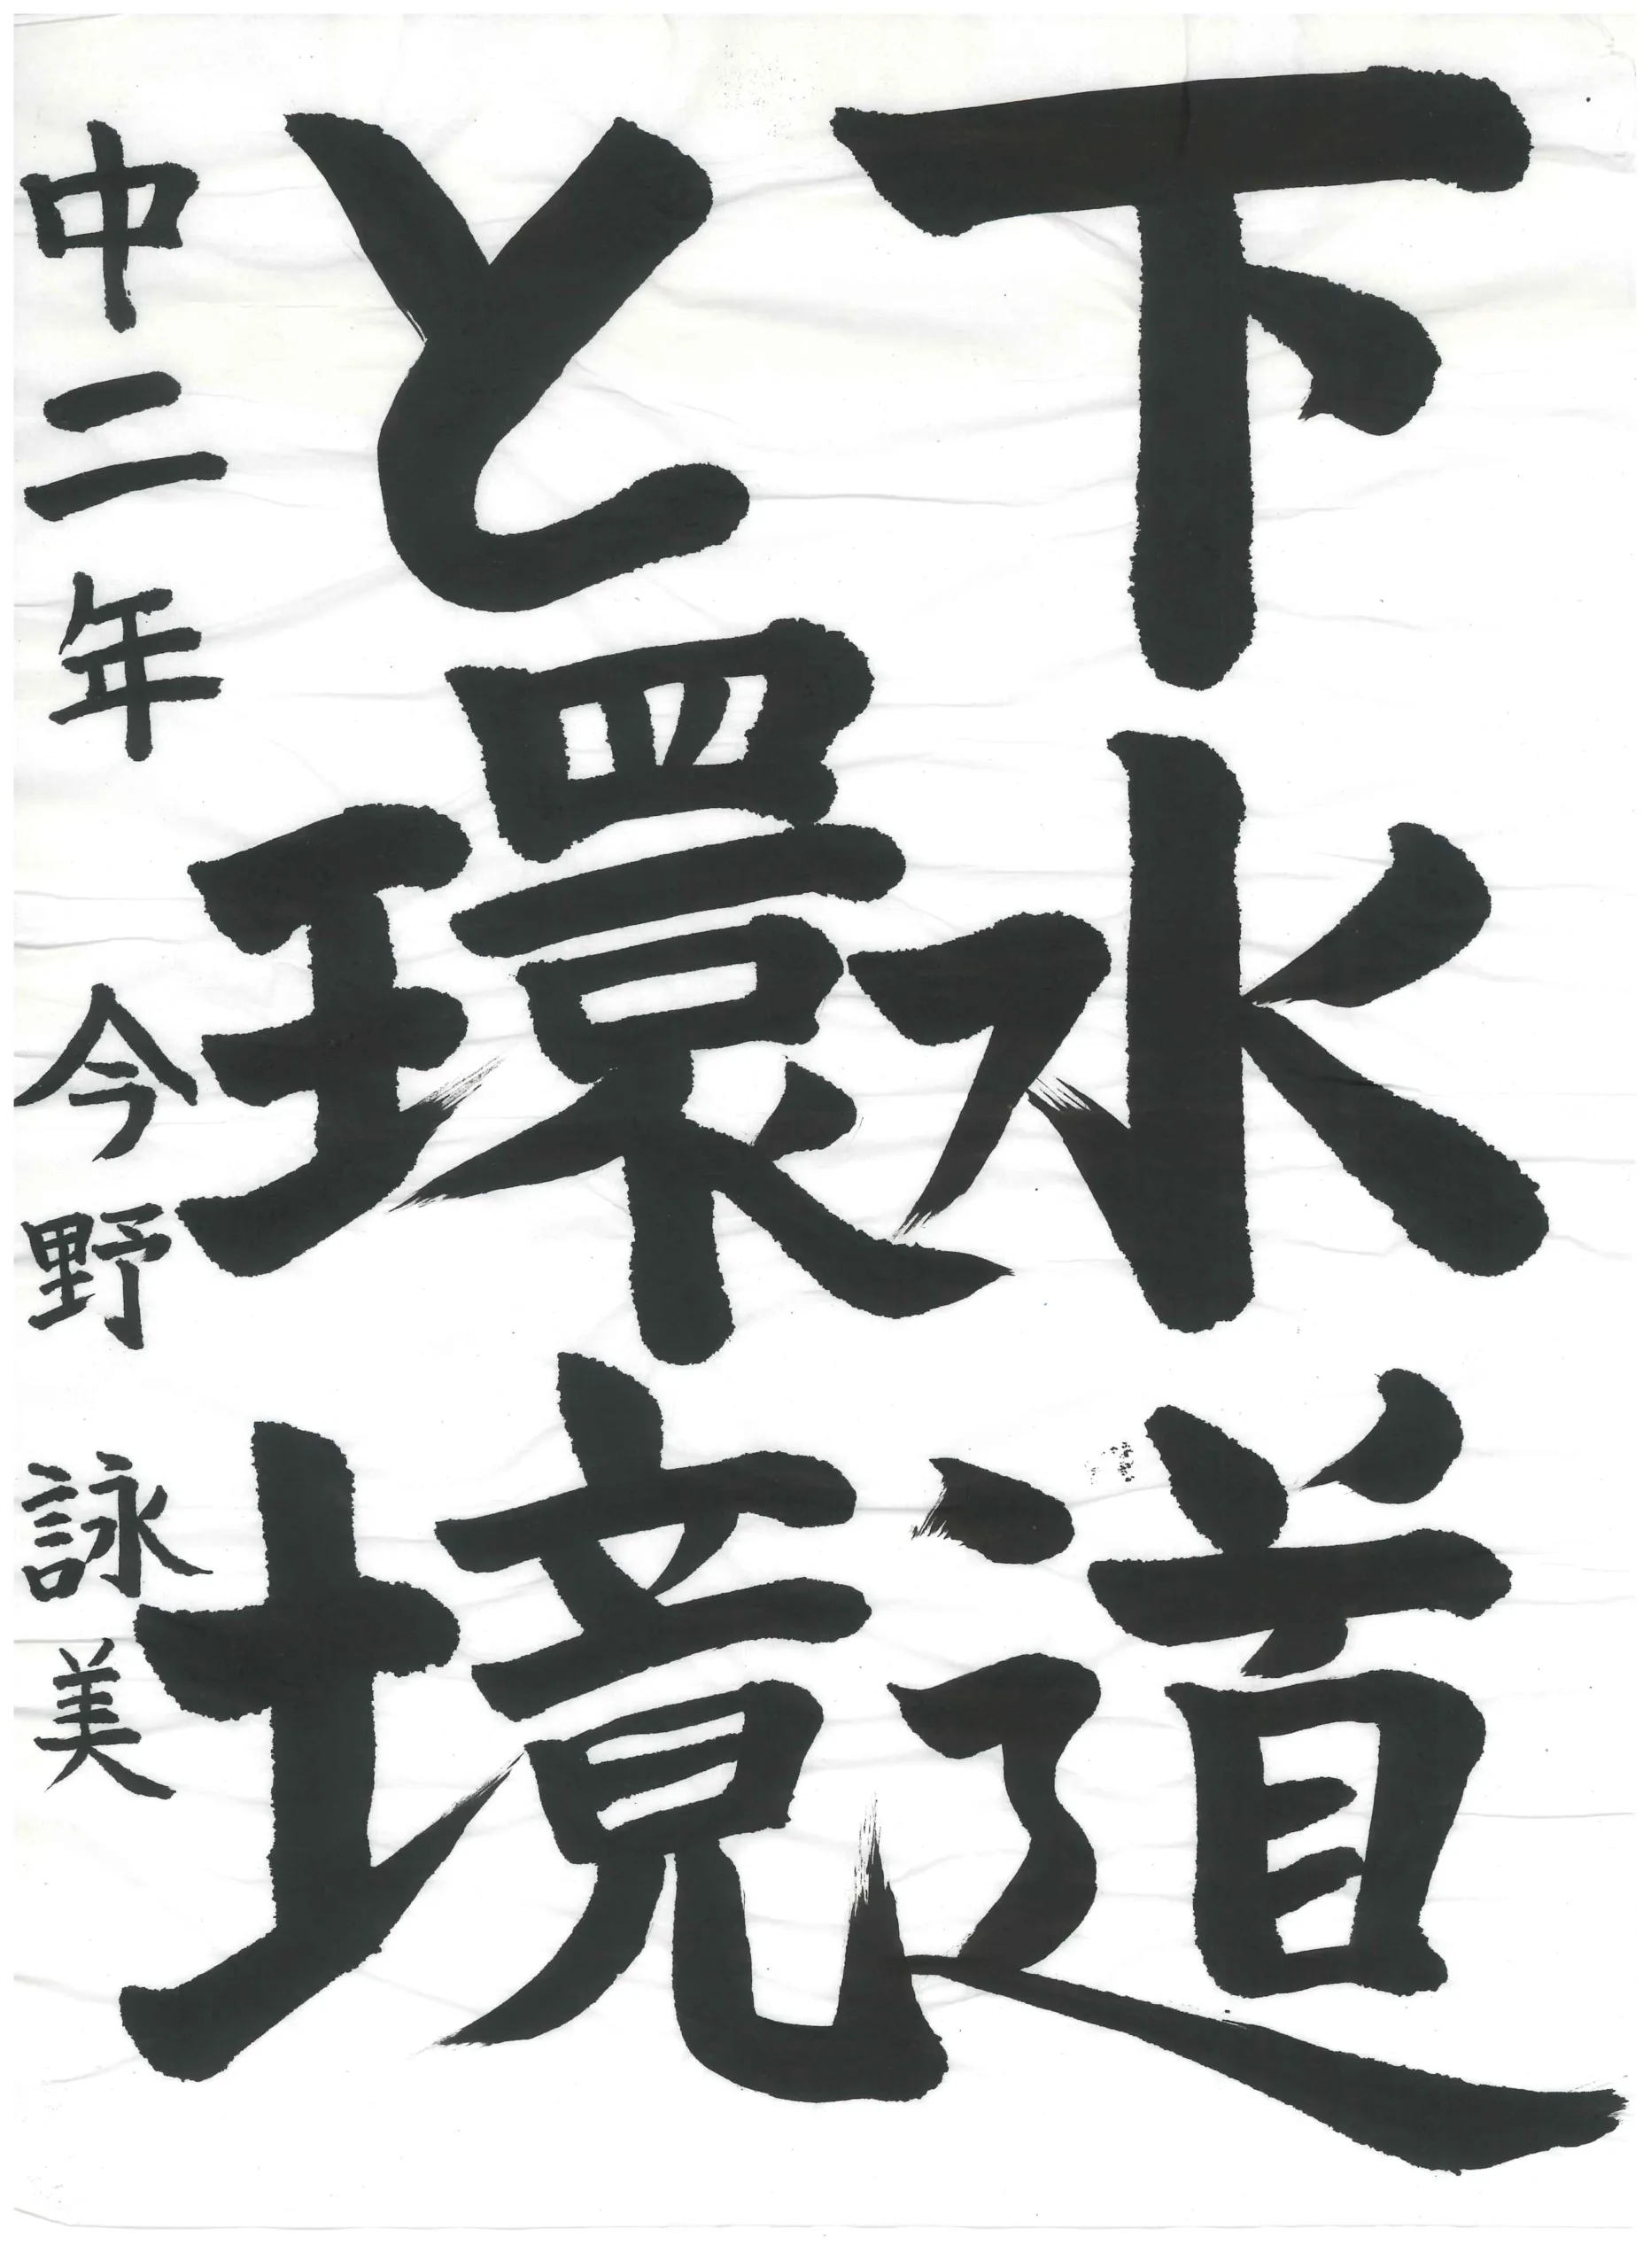 下水道
と環境
中二年 今野詠美